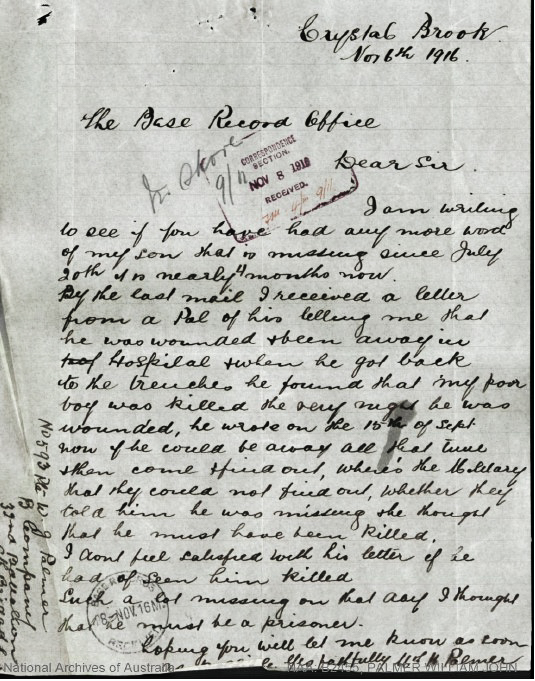 Crystal Brook
Nov 6th 1916.
The Base Record Office
Dear Sir
9/11
CORRESPONDENCE
SECTION.
NOV 8 1916
RECEIVED.
9/11
I am writing
to see if you have had any more word
of my son that is missing since July
20th it is nearly 4 months now.
By the last mail I received a letter
from a Pal of his telling me that
he was wounded & been away in
Hospital & when he got back
to the trenches he found that my poor
boy was killed the very night he was
wounded, he wrote on the 15th of Sept.
now if he could be away all that time
& then come & find out, where's the Military
that they could not find out, whether they
told him he was missing & he thought
that he must have been killed.
I dont feel satisfied with his letter if he
had of seen him killed
Such a lot missing on that day I thought
that he must be a prisoner.
Hoping you will let me know as soon
as
Palmer
8-NOV.16
No 593 Pte W J Palmer
B Company
32nd Battalion
8th Brigade
National Archives of Australia
PALMER WILLIAM JOHN